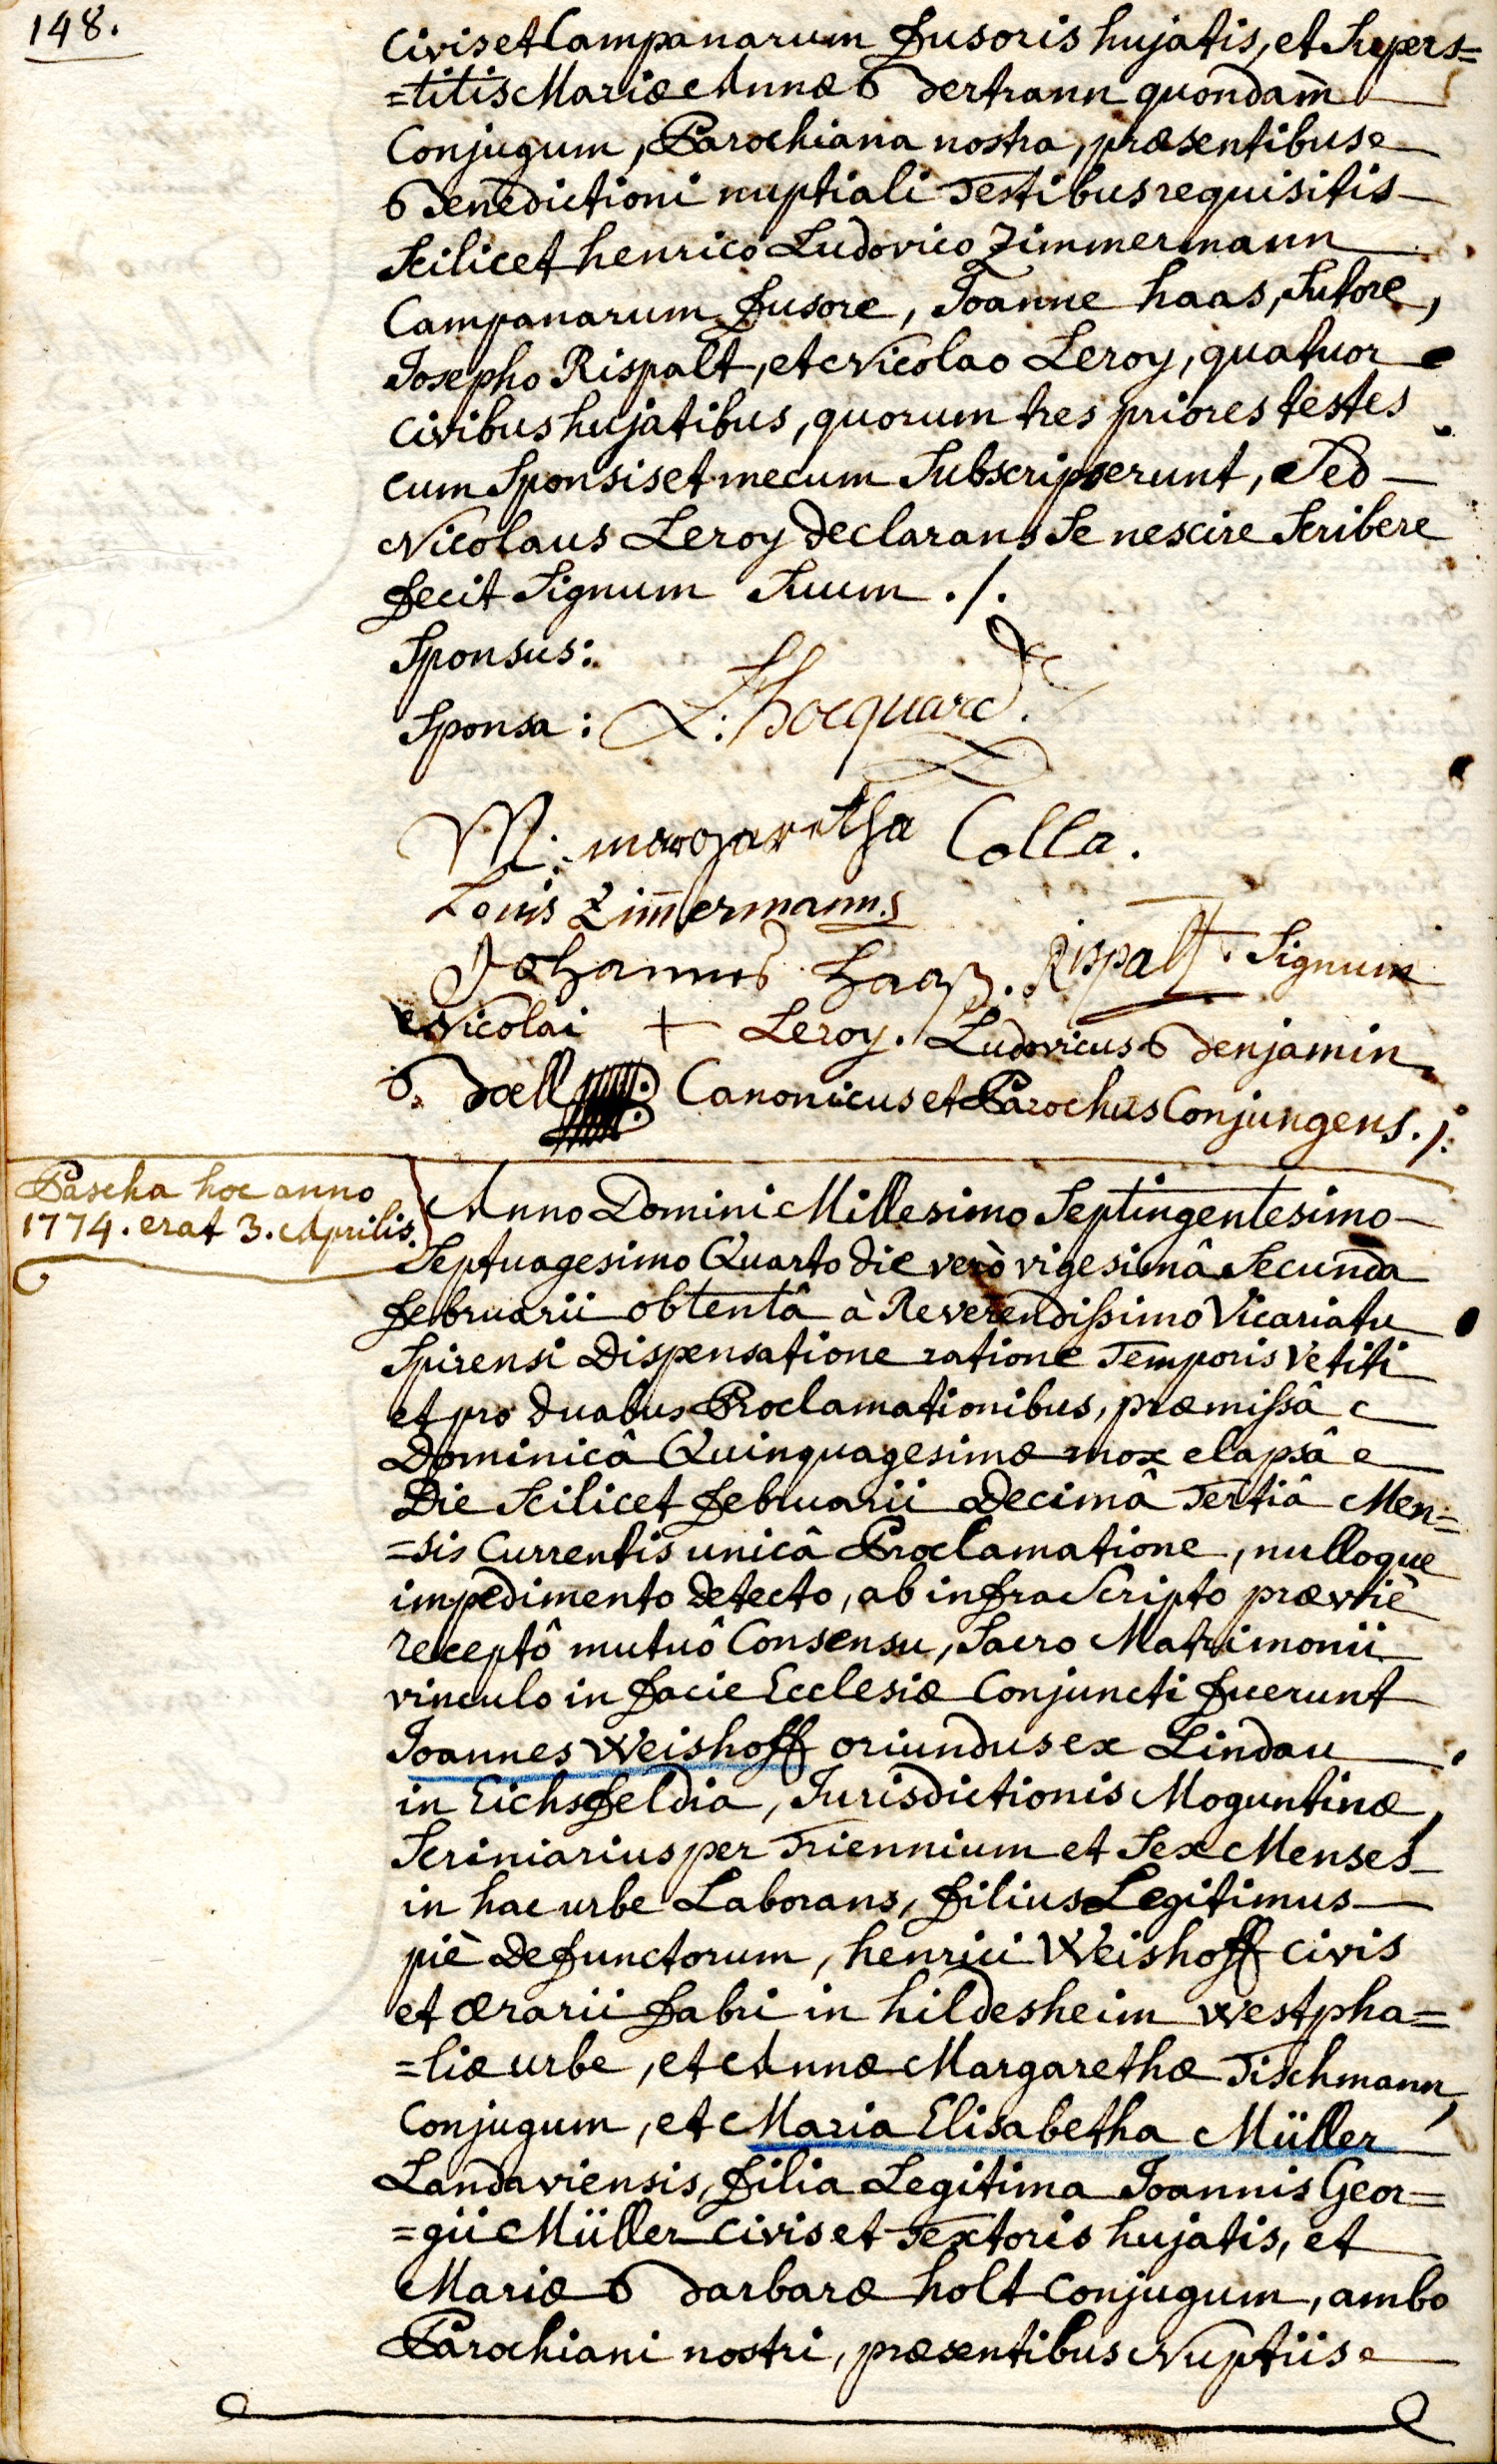 148.
Civis et Campanarum Fusoris hujatis, et Supers=
=titis Mariæ Annæ Bertrann quondam̃
Conjugum, Parochiana nostra, præsentibus
Benedictioni nuptiali Testibus requisitis
Scilicet henrico Ludovico Zimmermann
Campanarum Fusore, Joanne haas, Sutore,
Josepho Rispalt, et Nicolao Leroy, quatuor
Civibus hujatibus, quorum tres priores testes
cum Sponsis et mecum Subscripserunt, Sed
Nicolaus Leroy declarans Se nescire Scribere
Fecit Signum Suum ./.
Sponsus:
Sponsa: L: hocquard.
M: margaretha Colla.
Louis Zim̄ermann.
Johannes haaß. Rispalt. Signum
Nicolai + Leroy. Ludovicus Benjamin
B. Boell Canonicus et Parochus Conjungens ./.
Pascha hoc anno
1774. erat 3. Aprilis.
Anno Domini Millesimo Septingentesimo
Septuagesimo Quarto die verò vigesimâ Secunda
Februarii obtentâ à Reverendissimo Vicariatu
Spirensi Dispensatione ratione Temporis Vetiti
et pro duabus Proclamationibus, præmissâ
Dominicâ Quinquagesimæ mox elapsâ
Die Scilicet Februarii Decimâ Tertiâ Men=
=sis Currentis unicâ Proclamatione, nulloque
impedimento detecto, ab infra Scripto præviè
receptô mutuô Consensu, Sacro Matrimonii
vinculo in Facie Ecclesiæ Conjuncti Fuerunt
Joannes Weishoff oriundus ex Lindau
in Eichsfeldia, Jurisdictionis Moguntinæ,
Scriniarius per Triennium et Sex Menses
in hac urbe Laborans, Filius Legitimus
piè Defunctorum, henrici Weishoff civis
et ærarii Fabri in hildesheim Westpha=
=liæ urbe, et Annæ Margarethæ Tischmann,
Conjugum, et Maria Elisabetha Müller
Landaviensis, Filia Legitima Joannis Geor=
=gii Müller Civis et Textoris hujatis, et
Mariæ Barbaræ holt Conjugum, ambo
Parochiani nostri, præsentibus Nuptiis